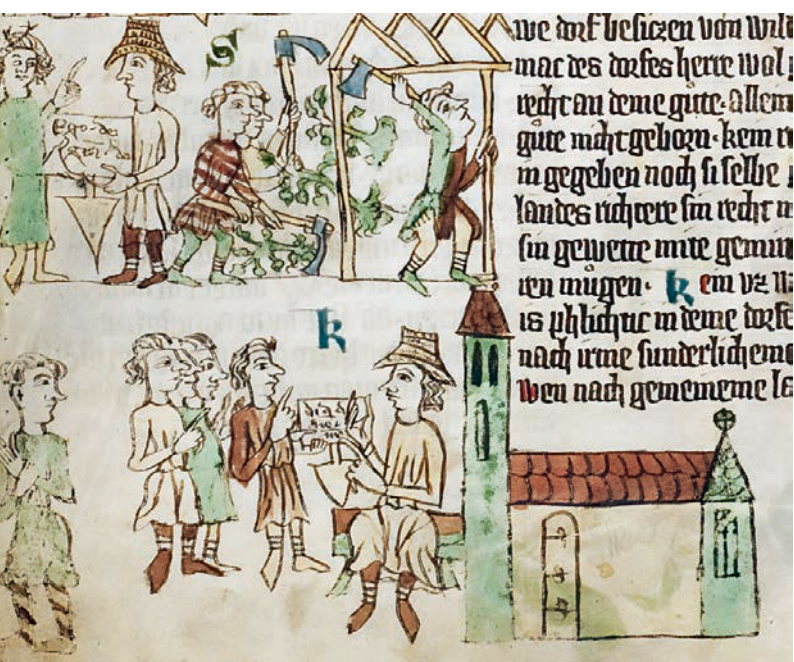 S
we dorf besiczen von wild
mac des dorfes herre wol
recht an deme gute· allem
gute nicht geborn· kein
in gegeben noch si selbe
landes richtere sin recht
sin gewette mite
ren mugen· k ein vz
is phlichtic in deme dorfe
nach irme sunderlicheme
Wen nach gemeineme
Ego dei
k